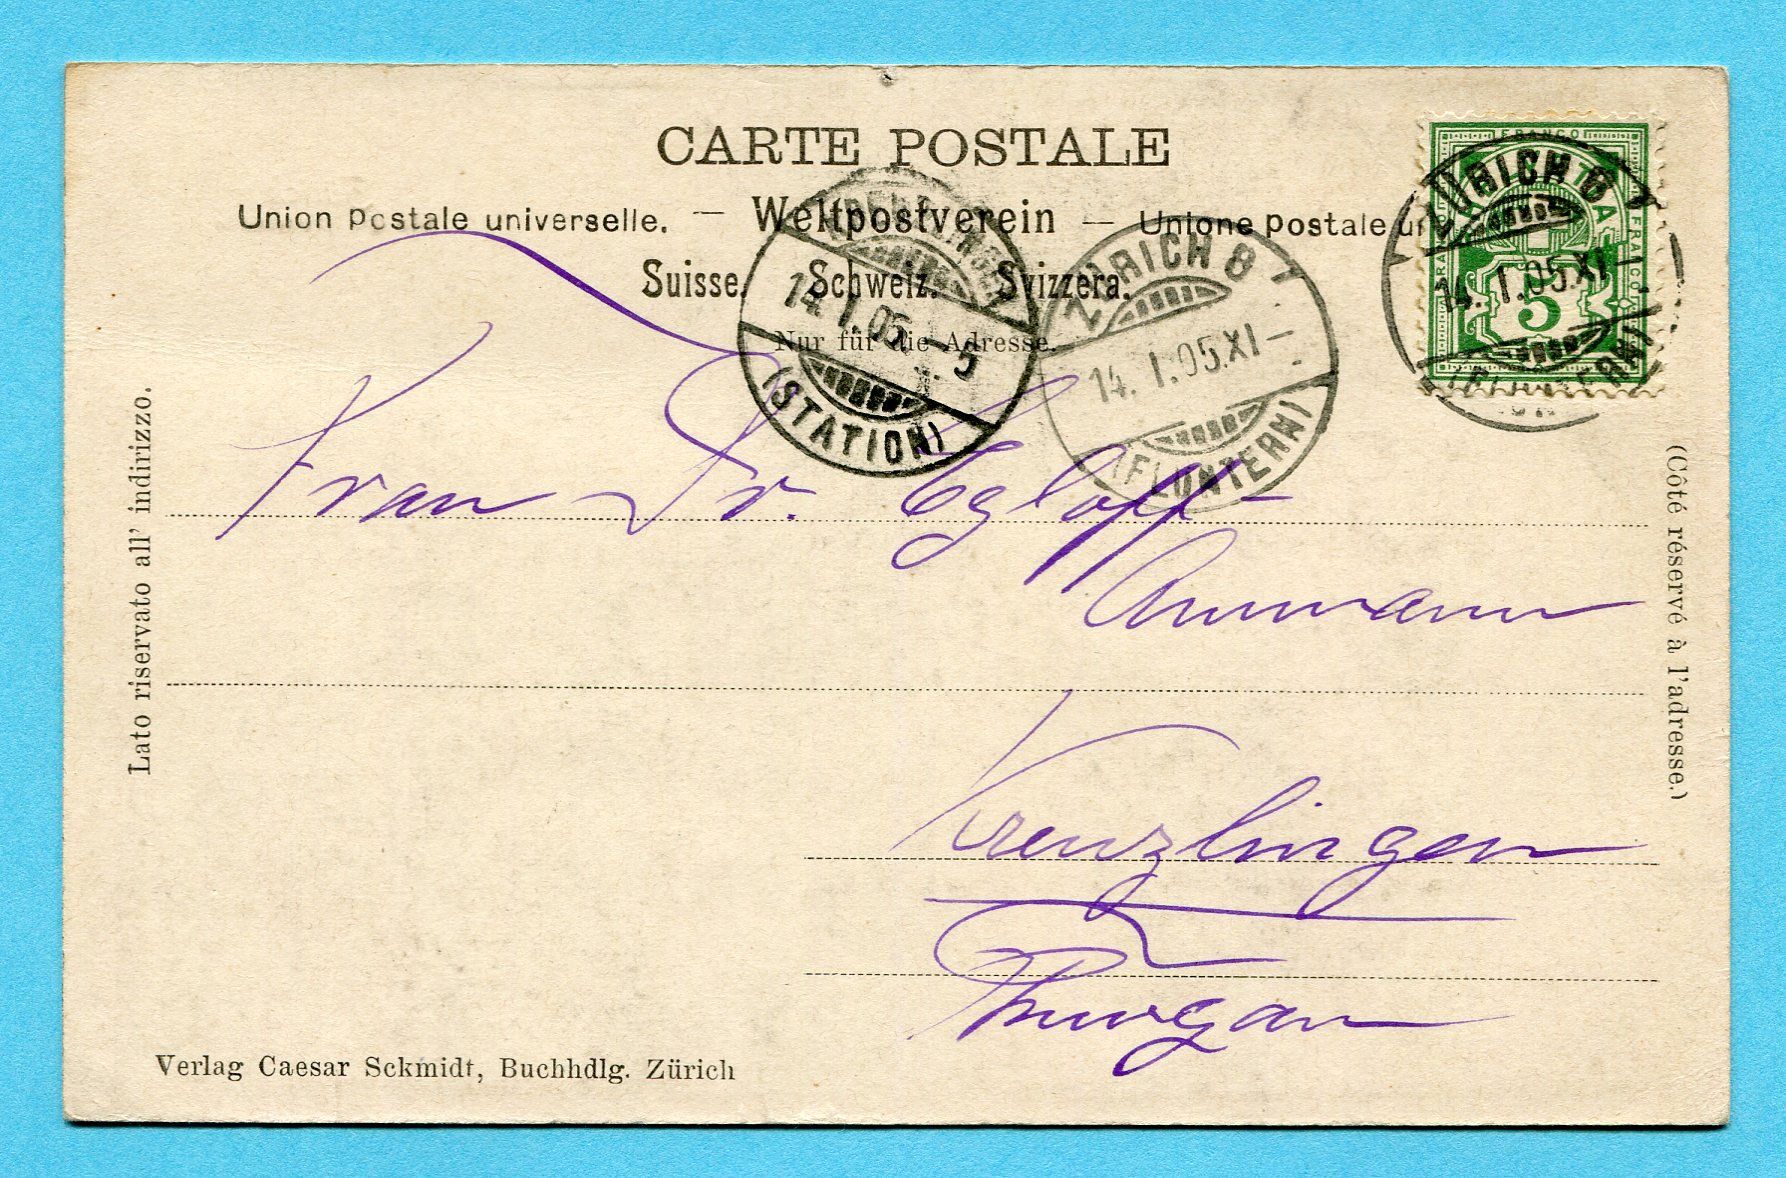 CARTE POSTALE
Union postale universelle. — Weltpostverein — Unione postale
Suisse. Schweiz. Svizzera.
Nur für die Adresse.
FRANCO
5
ZÜRICH 8
14. I. 05. XI –
(FLUNTERN)
ZÜRICH 8
14. I. 05. XI –
(FLUNTERN)
14. I. 05. – 5
(STATION)
Lato riservato all' indirizzo.
(Côté réservé à l'adresse.)
Frau Dr. Egloff-
Ammann
Kreuzlingen
Thurgau
Verlag Caesar Sckmidt, Buchhdlg. Zürich